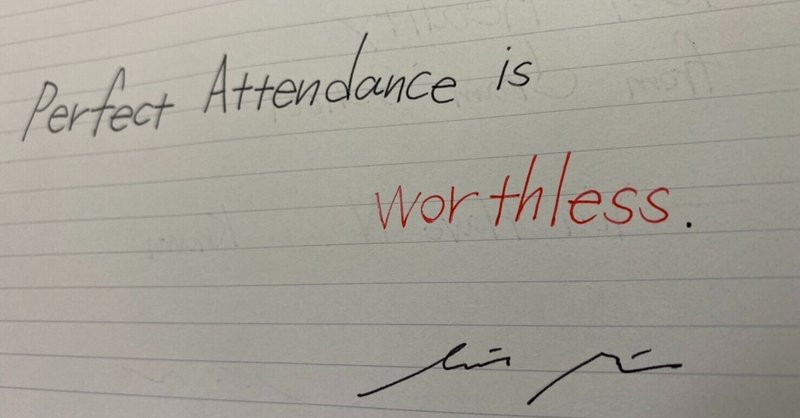 Perfect Attendance is
worthless.